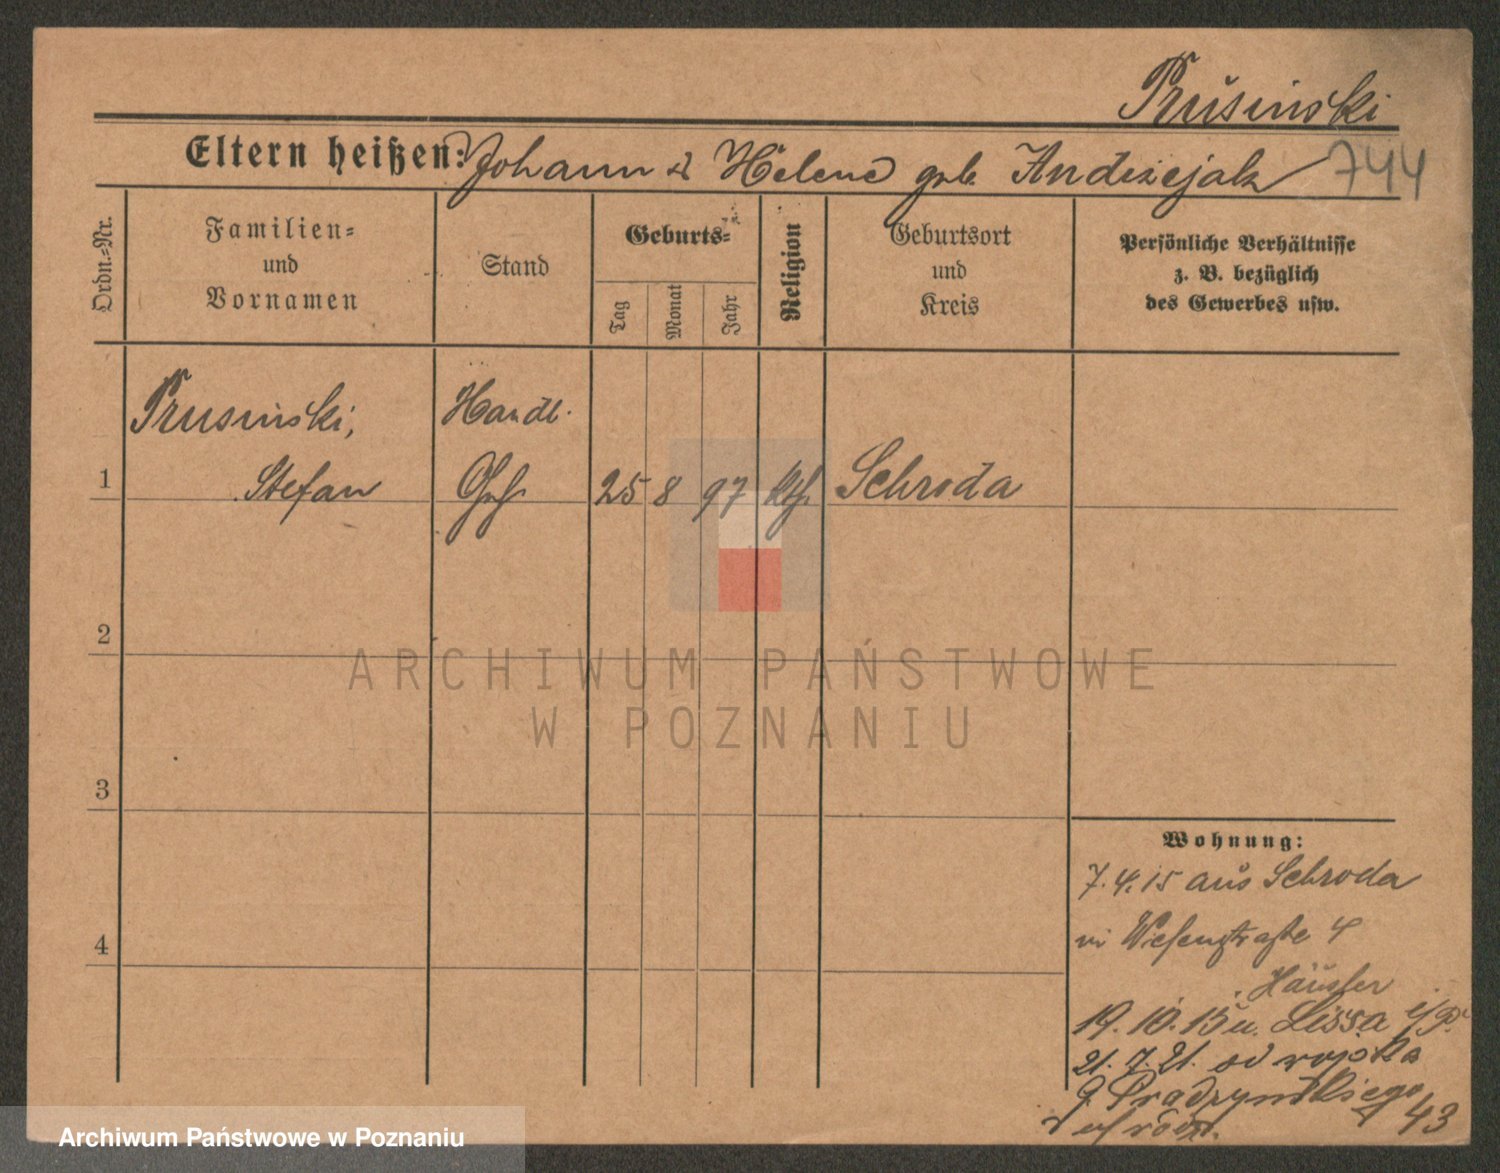 Prusinski
Eltern heißen: Johann & Helene geb. Andrzejak 744
Ordn.-Nr.
Familien-
und
Vornamen
Stand
Geburts-
Tag
Monat
Jahr
Religion
Geburtsort
und
Kreis
Persönliche Verhältnisse
z. B. bezüglich
des Gewerbes usw.
Prusinski, Handl.
1 Stefan Geh. 25 8 97 kth. Schroda
2
3
4
Wohnung:
7.4.15 aus Schroda
Wiesenstraße 4
Häusler
19.10.15 u. Lissa i/P.
21.7.21. od wojska
g. Prądzyńskiego 43
ARCHIWUM PAŃSTWOWE
W POZNANIU
Archiwum Państwowe w Poznaniu